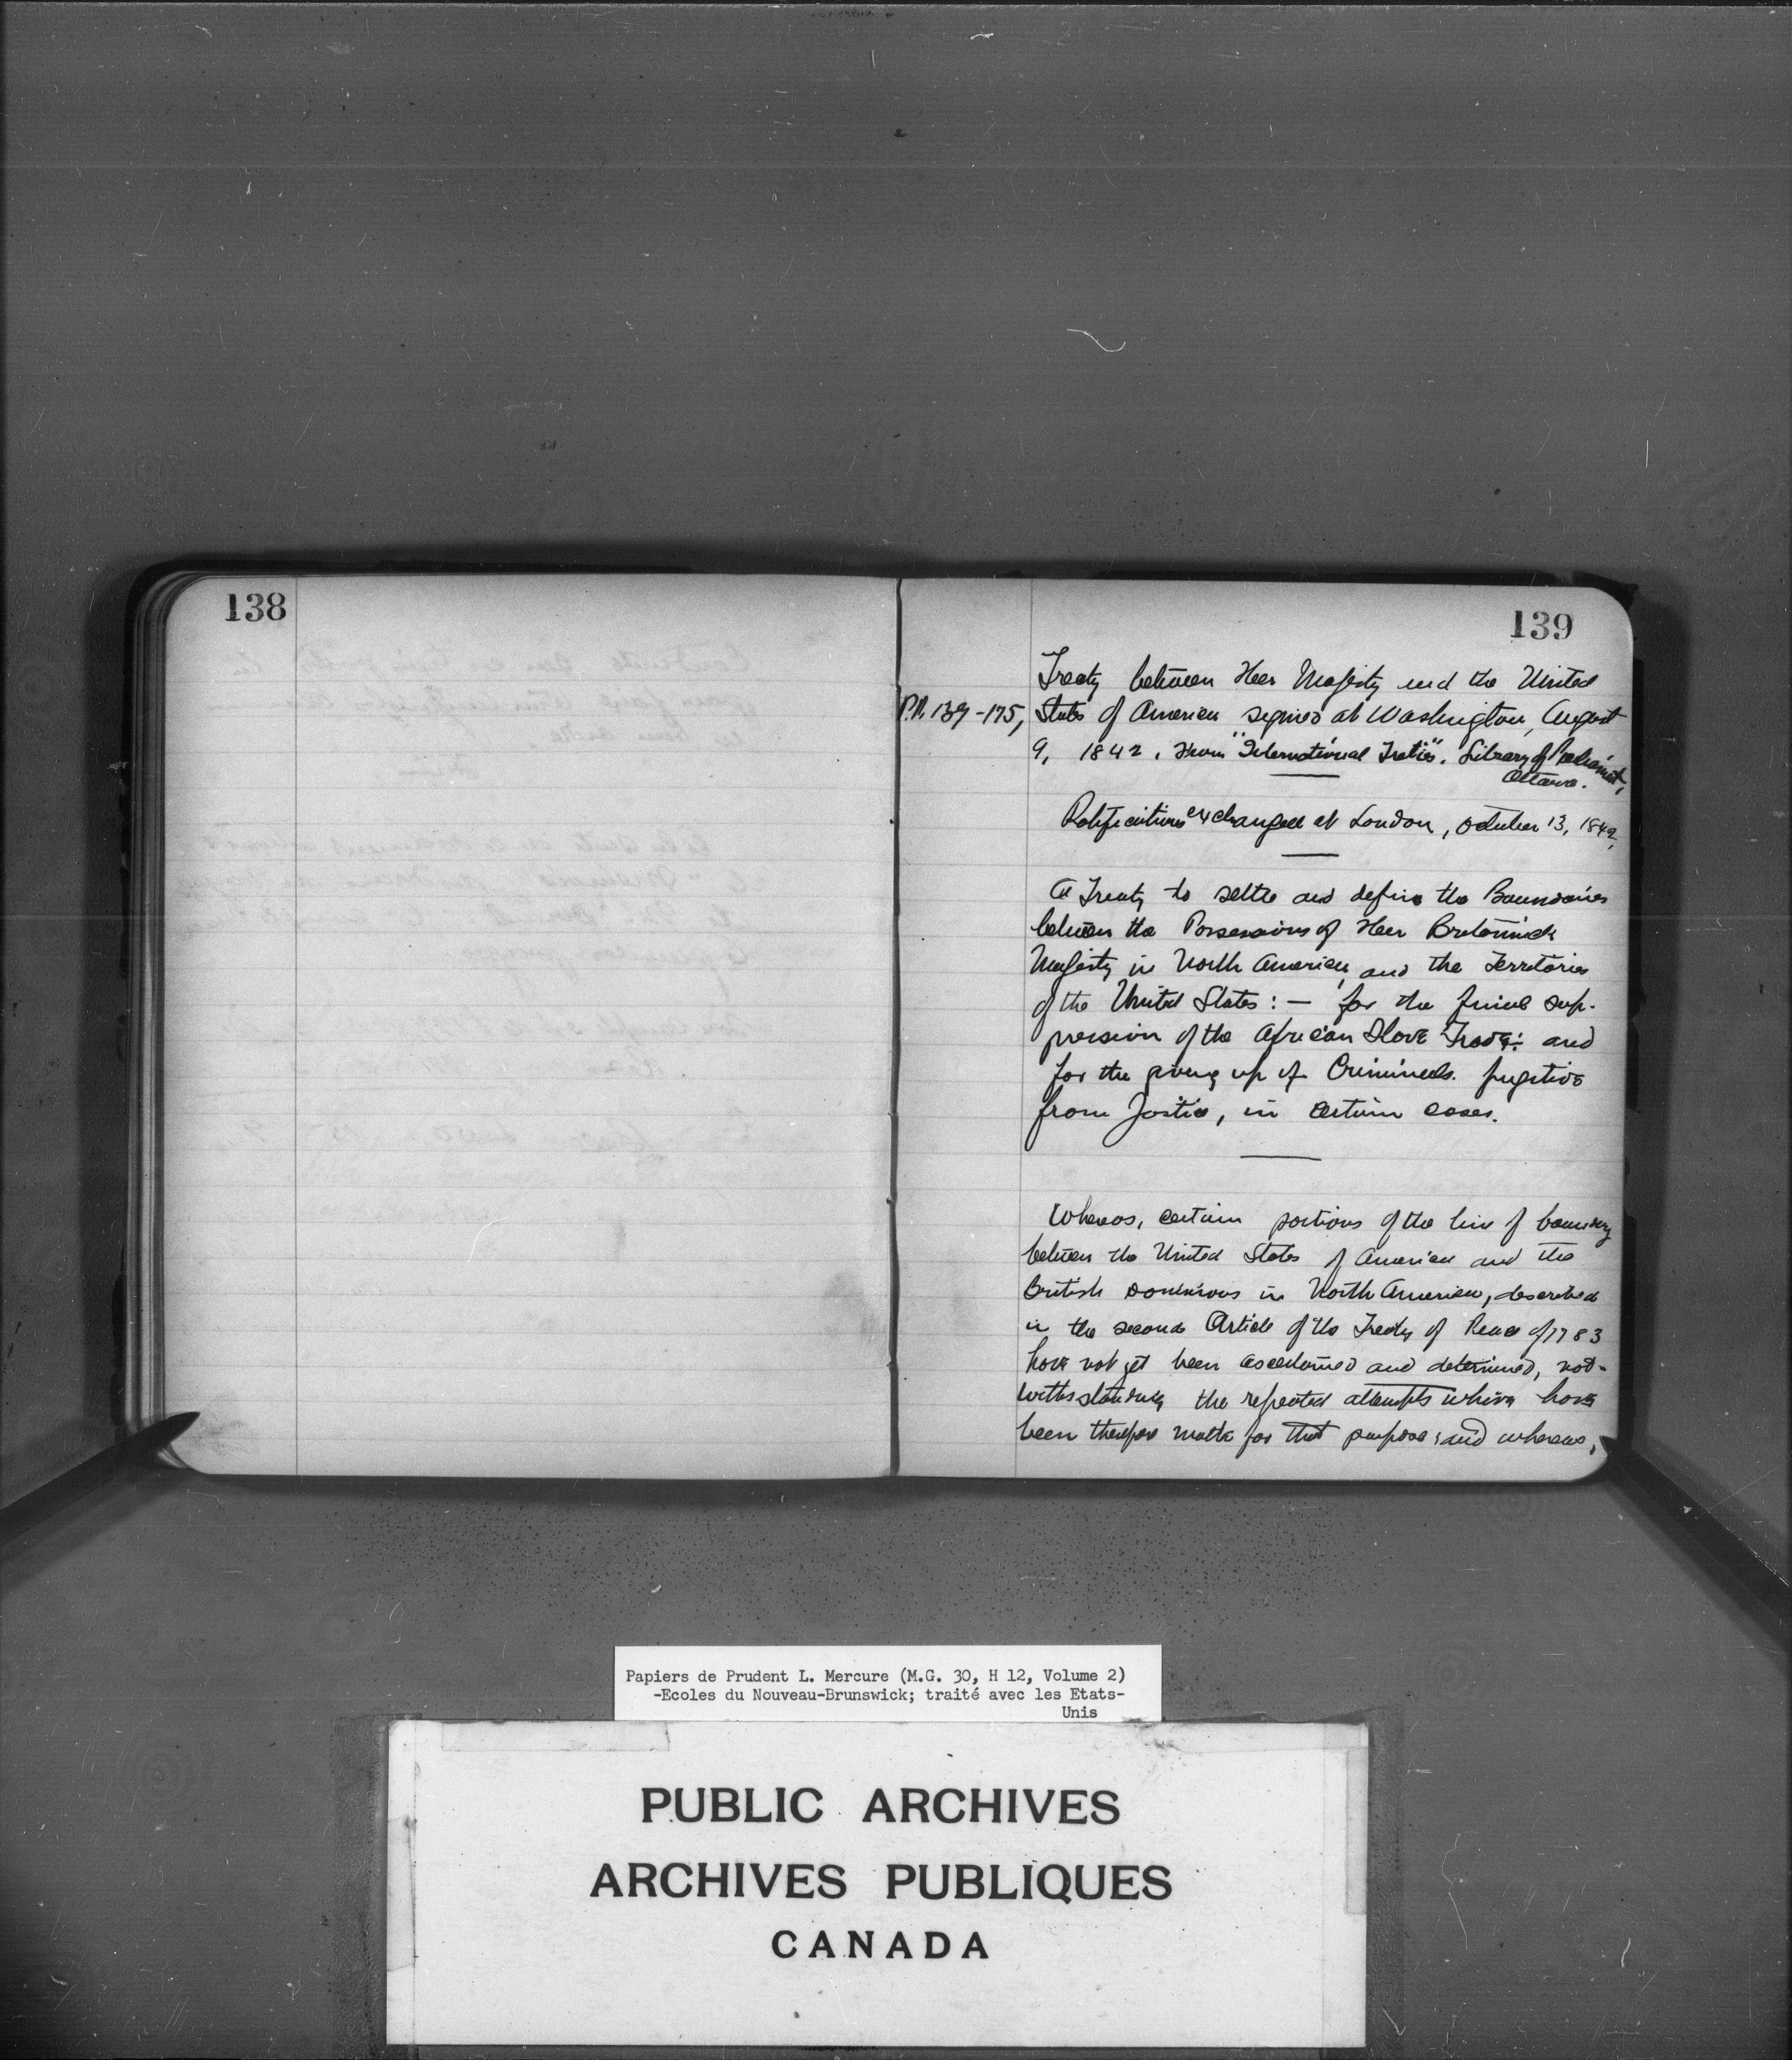 138
139
Treaty between Her Majesty and the United
P.P. 139-175, States of America signed at Washington, August
9, 1842. From "International Treaties". Library of Parliament,
Ottawa.
Ratifications exchanged at London, October 13, 1842,
A Treaty to settle and define the Boundaries
between the Possessions of Her Britannick
Majesty in North America, and the Territories
of the United States: — for the final sup-
pression of the African Slave Trade: and
for the giving up of Criminals. fugitive
from Justice, in certain cases.
Whereas, certain portions of the line of boundary
between the United States of America and the
British Dominions in North America, described
in the second Article of the Treaty of Peace of 1783
have not yet been ascertained and determined, not-
withstanding the repeated attempts which have
been made for that purpose; and whereas,
Papiers de Prudent L. Mercure (M.G. 30, H 12, Volume 2)
-Ecoles du Nouveau-Brunswick; traité avec les Etats-
Unis
PUBLIC ARCHIVES
ARCHIVES PUBLIQUES
CANADA